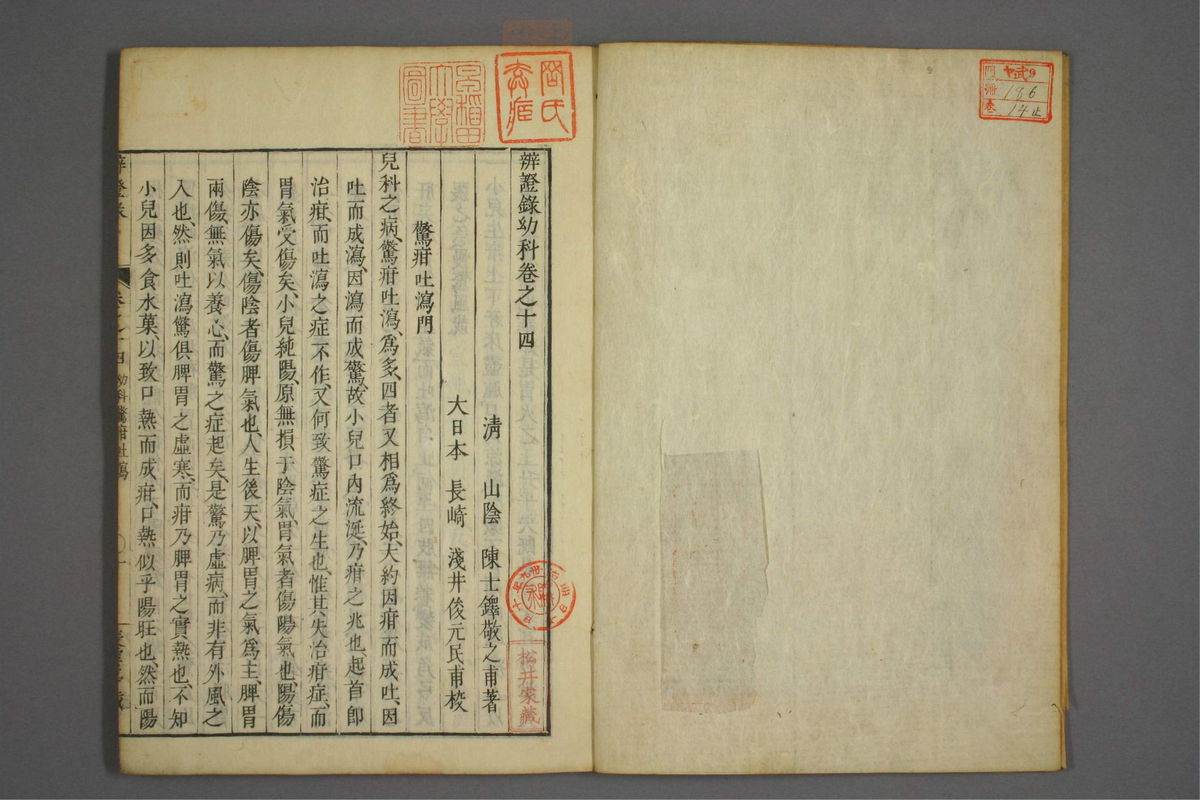 辨證錄幼科卷之十四
清 山陰 陳士鐸敬之甫著
大日本 長崎 淺井俊元民甫校
驚疳吐瀉門
兒科之病、驚疳吐瀉、爲多、四者又相爲終始、大約因疳而成吐、因
吐而成瀉、因瀉而成驚、故小兒口內流涎、乃疳之兆也、起首卽
治疳、而吐瀉之症不作、又何致驚症之生也、惟其失治疳症、而
胃氣受傷矣、小兒純陽、原無損于陰氣、胃氣者傷陽氣也、陽傷
陰亦傷矣、傷陰者傷脾氣也、人生後天、以脾胃之氣爲主、脾胃
兩傷、無氣以養心、而驚之症起矣、是驚乃虛病、而非有外風之
入也、然則吐瀉驚俱脾胃之虛寒、而疳乃脾胃之實熱也、不知
小兒因多食水菓、以致口熱而成疳、口熱似乎陽旺也、然而陽
幼科驚疳吐瀉
早稻田
大學
圖書
松井家藏
186
14止